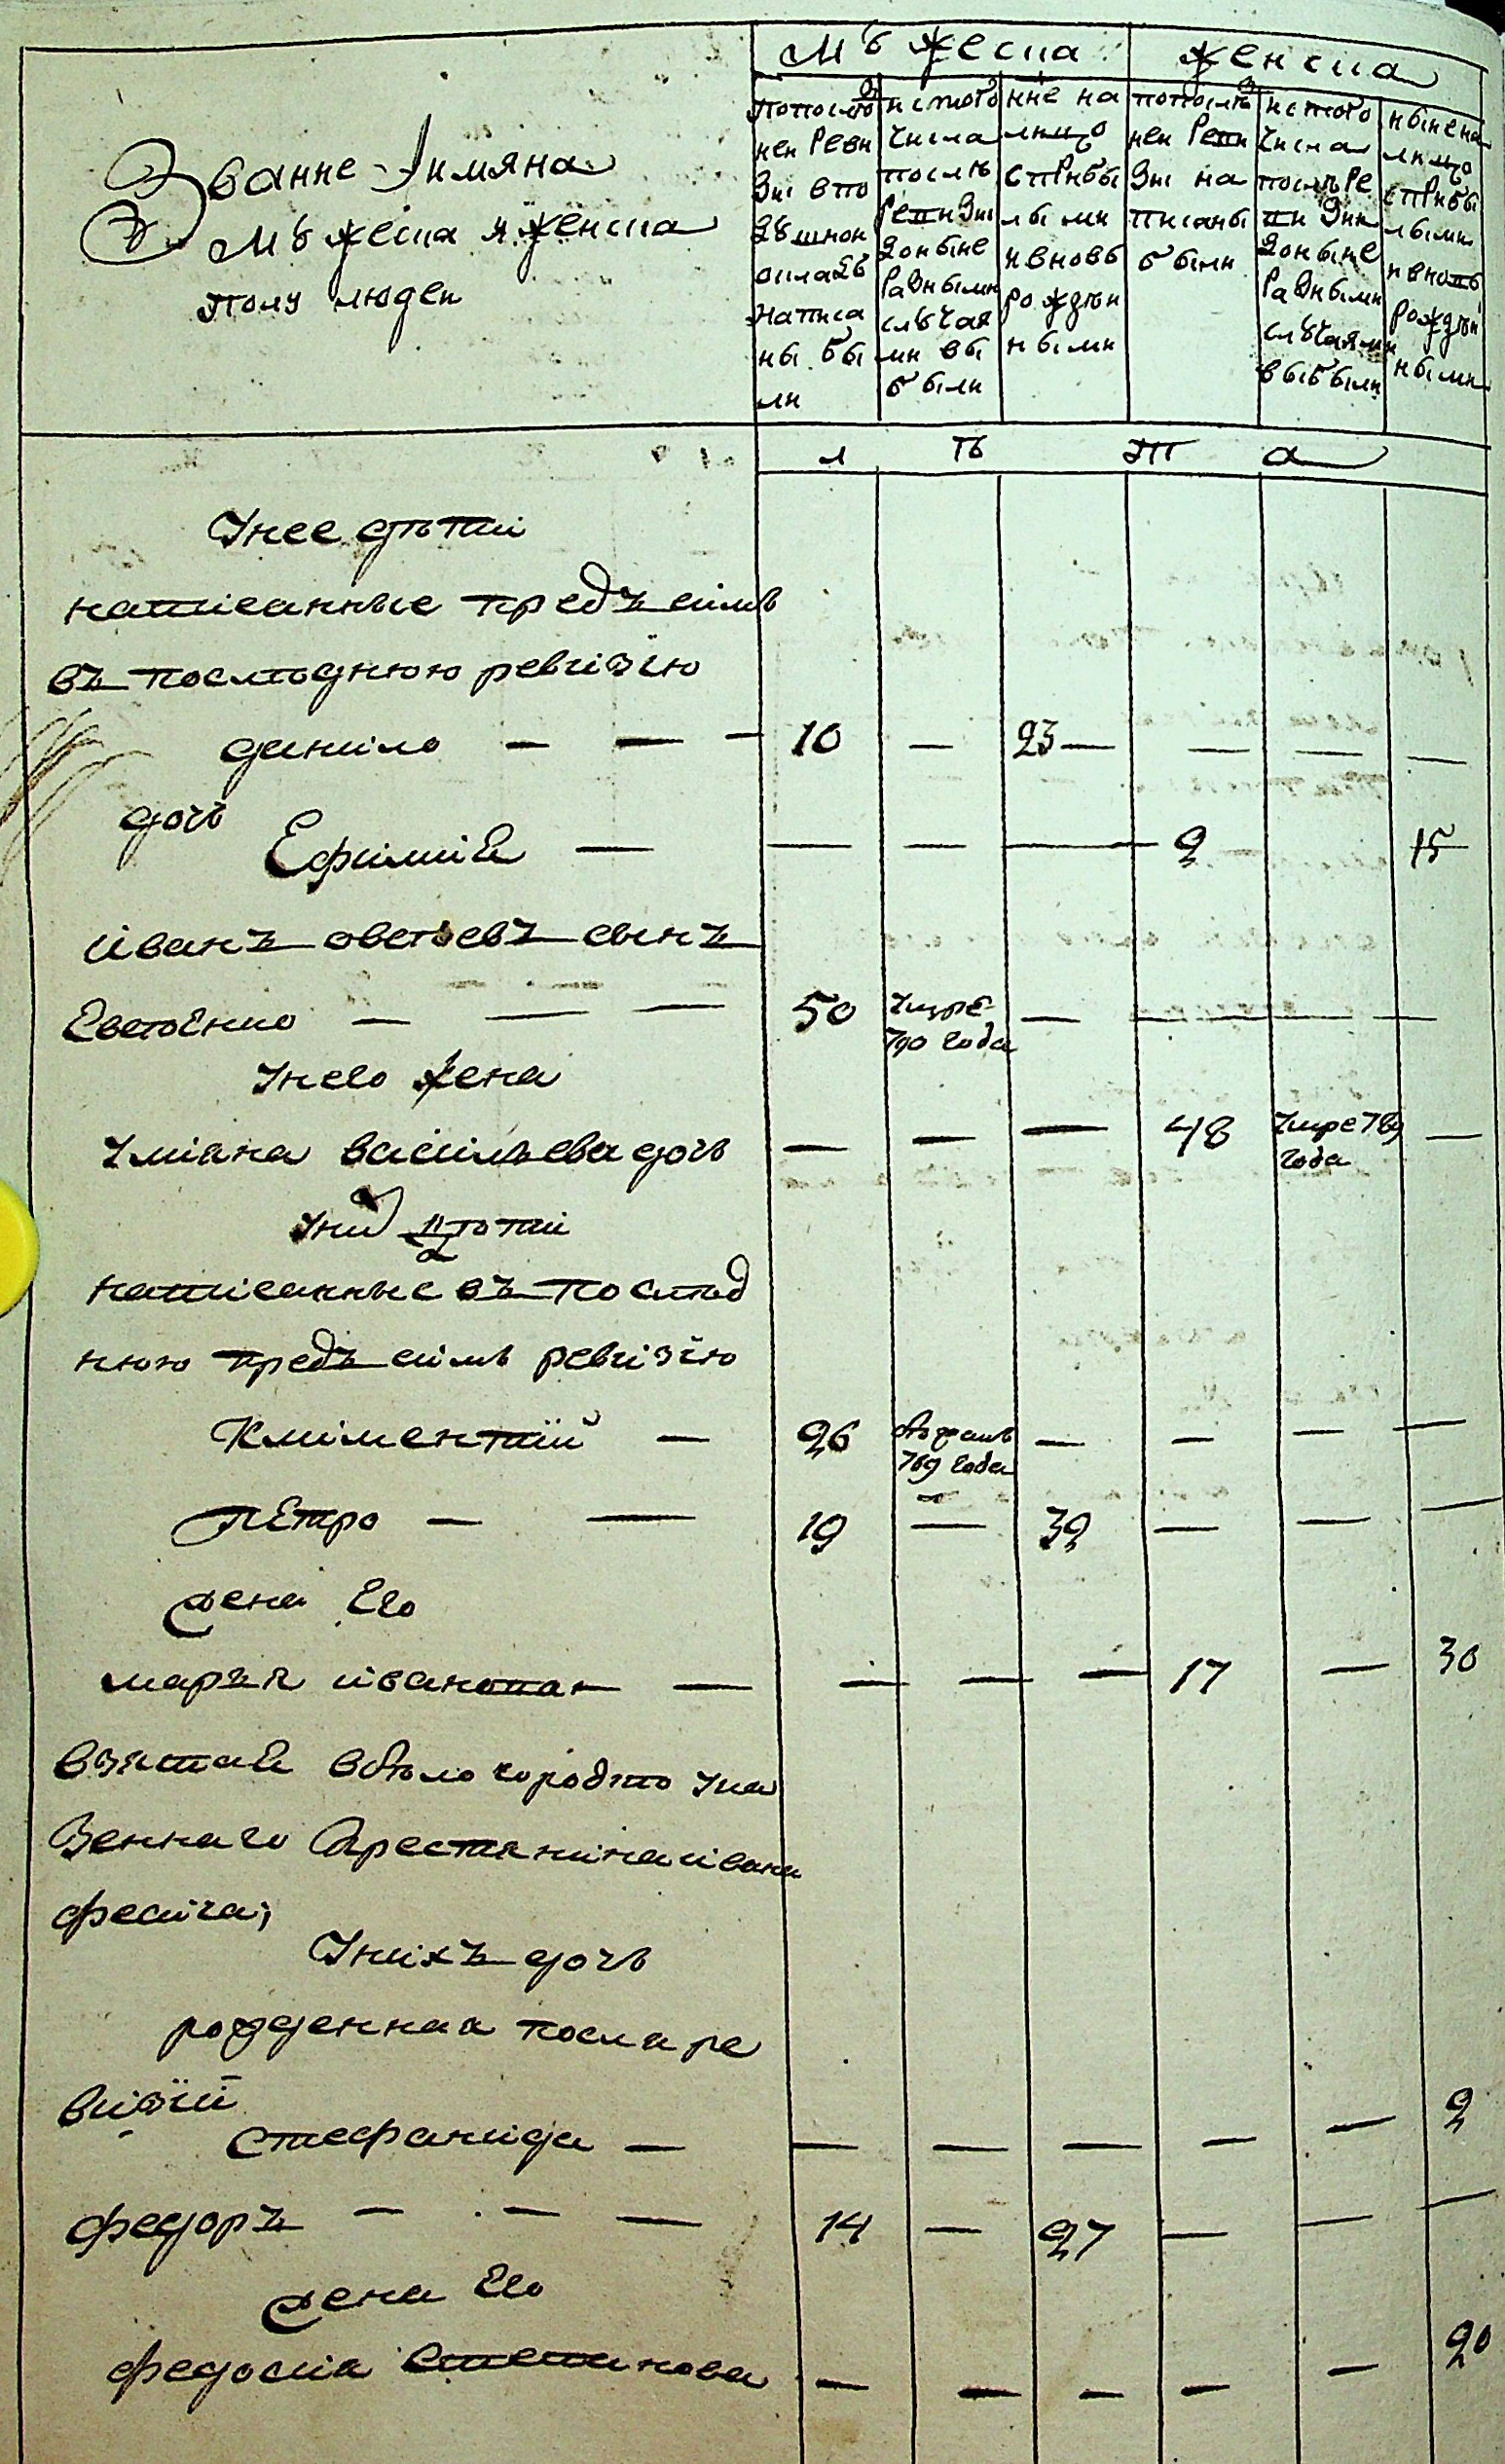 мужеска
женска
Звание Имяна
мужеска и женска
полу людей
по послѣдней ревизiи в подушной окладъ написаны были
ис того числа послѣ ревизiи до ныне разными случаями выбыли
ныне на лицо с прибылыми и вновь рожденными
по послѣдней ревизiи написаны были
ис того числа послѣ ревизiи до ныне разными случаями выбыли
ныне на лицо с прибылыми и вновь рожденными
л ѣ т а
У нее дѣти
написанные предъ симъ
въ послѣднюю ревизiю
данило — — — 10 — 23 — — — —
дочь
Ефимия — — — — 2 15
иванъ сынъ
50 умре
790 года — — — —
У него жена
улияна василѣева дочь — — — 48 умре 789
года —
У них дѣти
написанные въ послѣд
нюю предъ симъ ревизiю
Климентiй — 26 789 года — — — —
пЕтро — — 19 — 32 — — —
жена Его
маръя иванова — — — — 17 — 30
взятая в бѣлогородѣ у ка
зеннаго крестянина ивана
У нихъ дочь
рожденная посля ре
визiи
стефанида — — — — — — 2
федоръ — — — 14 — 27 — — —
жена Его
федосия степанова — — — — — 20